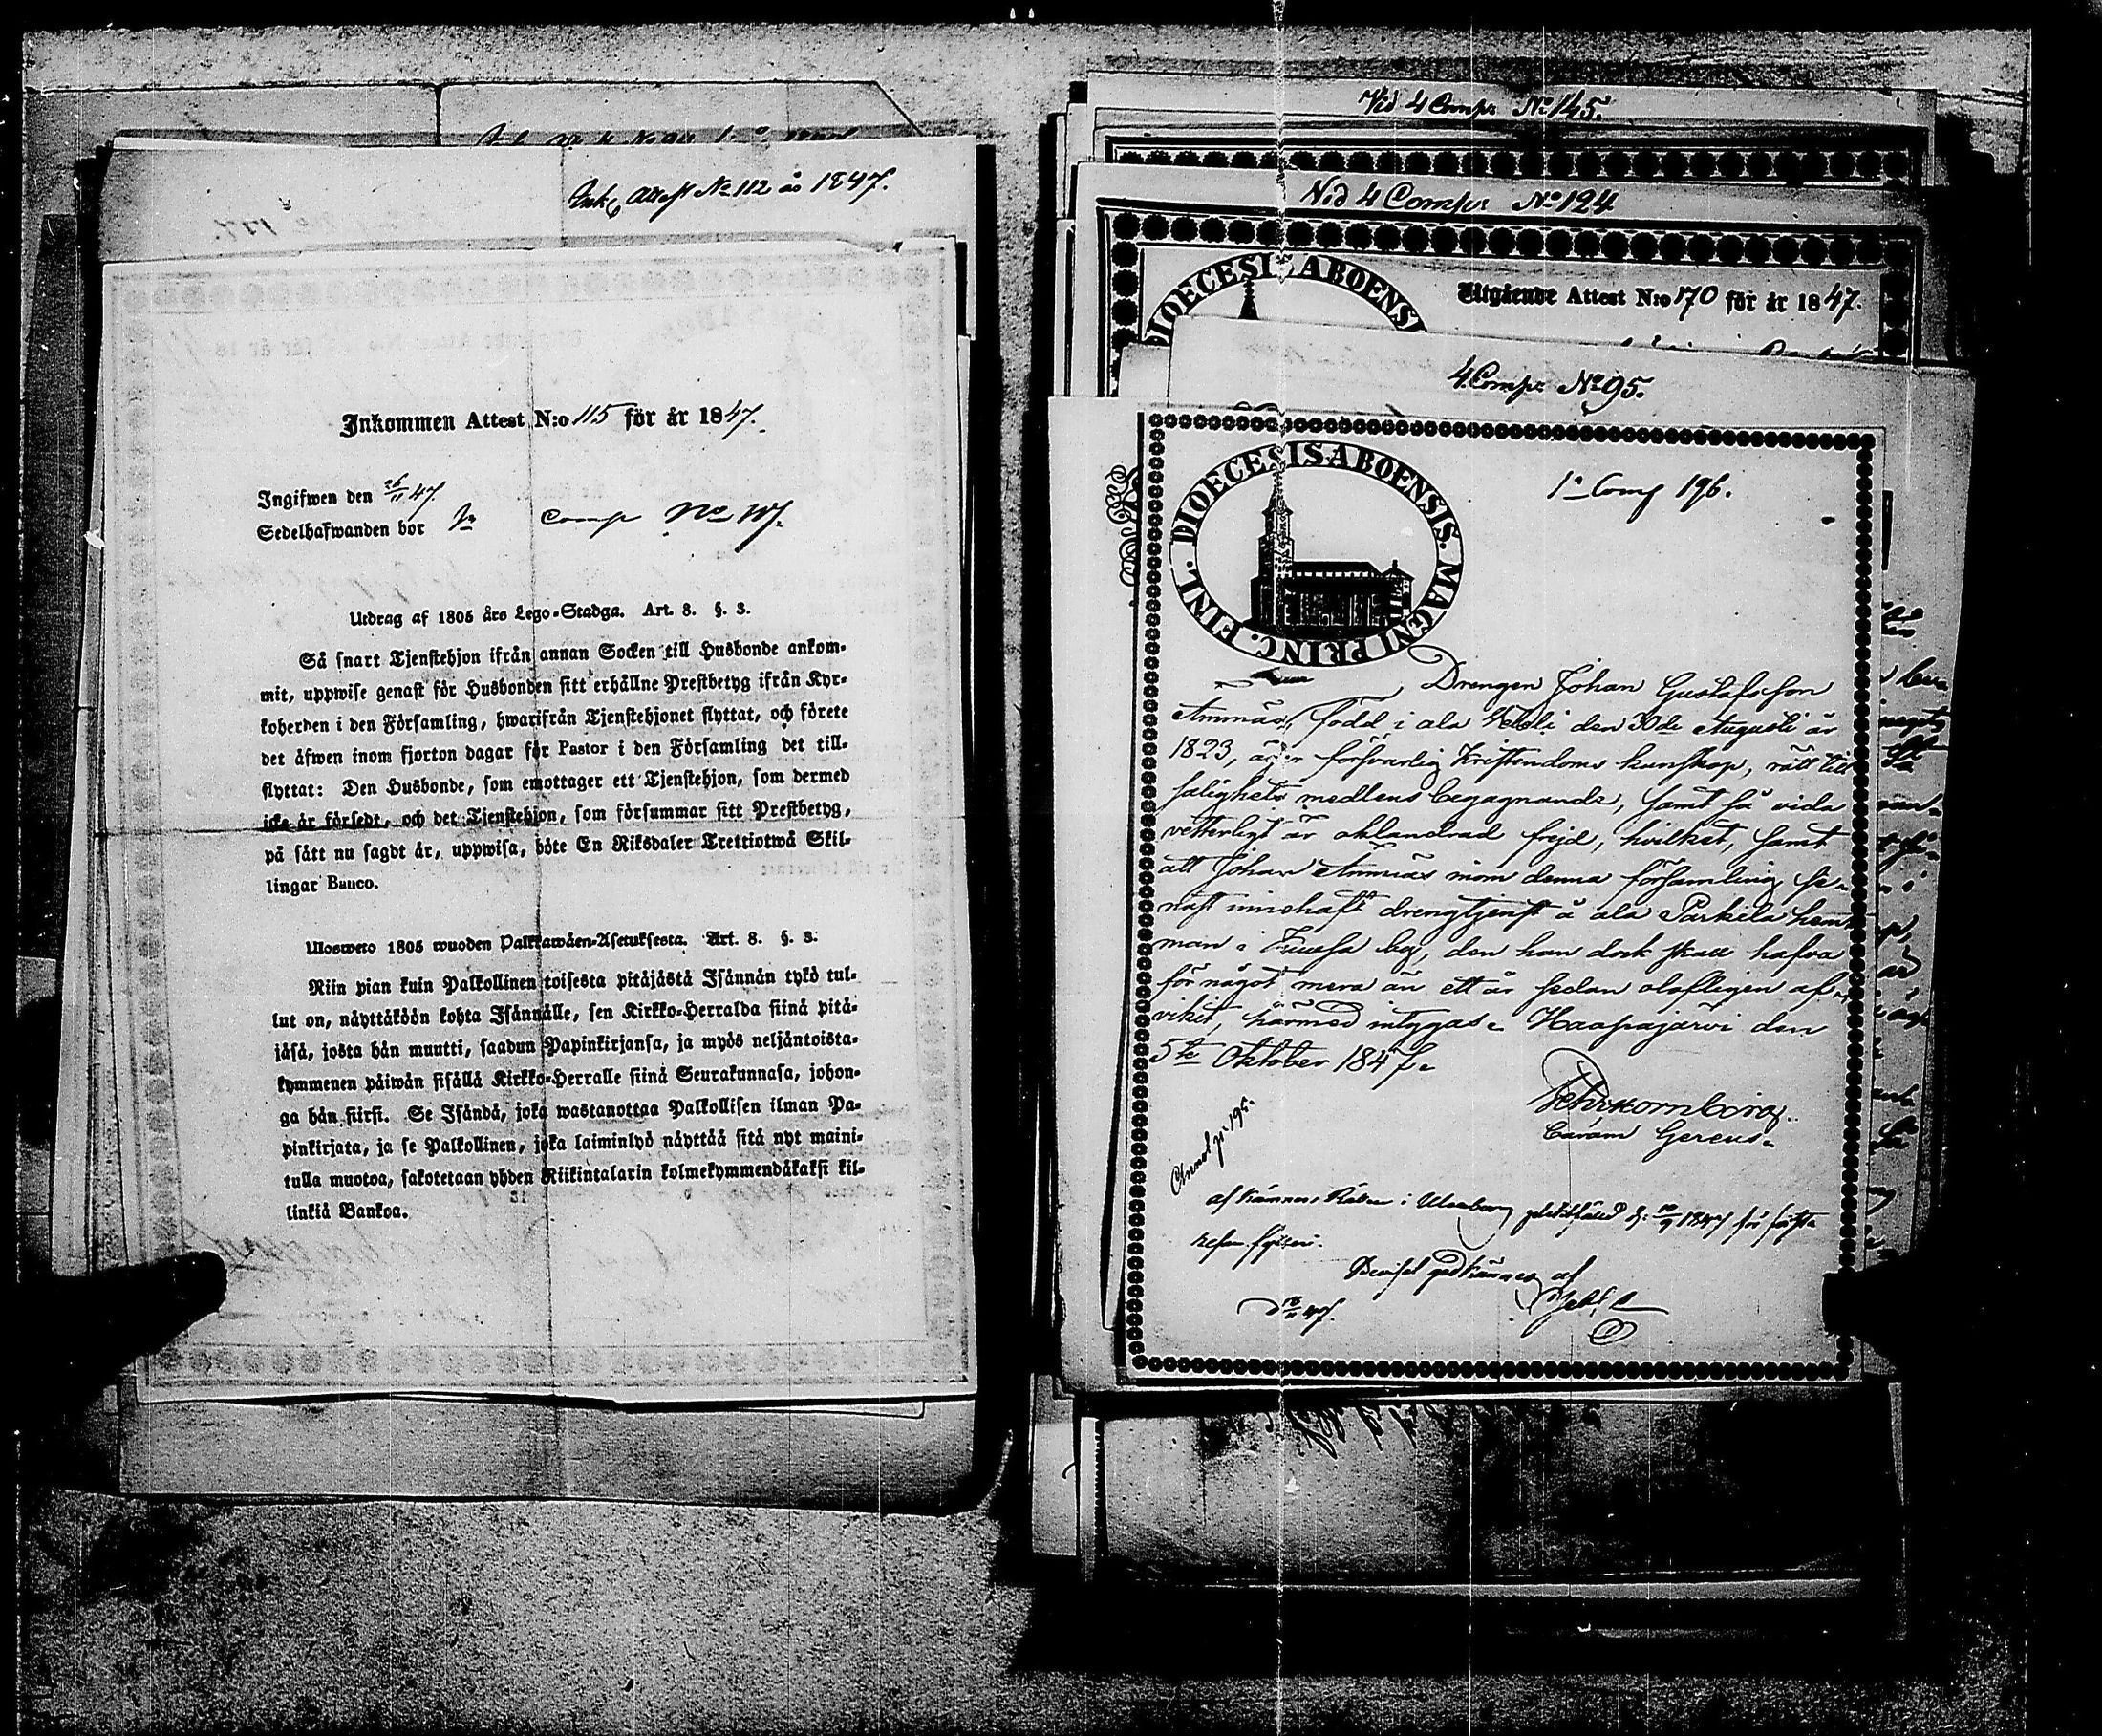 Ink. Attest No 112 år 1847.
Inkommen Attest N:o 115 för år 1847.
Ingifwen den 26/11 47.
Sedelhafwanden bor 1a Comp No
Utdrag af 1805 års Lego-Stadga. Art. 8. §. 3.
Så snart Tjenstehjon ifrån annan Socken till Husbonde ankom-
mit, uppwise genast för Husbonden sitt erhållne Prestbetyg ifrån Kyr-
koherden i den Församling, hwarifrån Tjenstehjonet flyttat, och förete
det äfwen inom fjorton dagar för Pastor i den Församling det till-
flyttat: Den Husbonde, som emottager ett Tjenstehjon, som dermed
icke är försedt, och det Tjenstehjon, som försummar sitt Prestbetyg,
på sätt nu sagdt är, uppwisa, böte En Riksdaler Trettiotwå Skil-
lingar Banco.
Ulosweto 1805 wuoden Palkkawäen-Asetuksesta. Art. 8. §. 3.
Niin pian kuin Palkollinen toisesta pitäjästä Isännän tykö tul-
lut on, näyttäköön kohta Isännälle, sen Kirkko-Herralda siinä pitä-
jäsä, josta hän muutti, saadun Papinkirjansa, ja myös neljäntoista-
kymmenen päiwän sisällä Kirkko-Herralle siinä Seurakunnasa, johon-
ga hän siirsi. Se Isändä, joka wastanottaa Palkollisen ilman Pa-
pinkirjata, ja se Palkollinen, joka laiminlyö näyttää sitä nyt maini-
tulla muotoa, sakotetaan yhden Riikintalarin kolmekymmendäkaksi kil-
linkiä Bankoa.
Vid 4 Comp. No 145.
Vid 4 Comp. No 124
DIOECESIS ABOENSI
Utgående Attest N:o 170 för år 1847.
4 Comp. No 95.
DIOECESIS ABOENSIS. MAGNI PRINC. FINL.
1a Comp 196.
Drengen Johan Gustafsson
Ammäs, född i ala den 30de Augusti år
1823, äger försvarlig Kristendoms kunskap, rätt till
salighets medlens begagnande, samt så vida
vetterligt är oklandrad frejd, hvilket, samt
att Johan Ammäs inom denna församling se-
nast innehaft drengtjenst å ala Parkila hem-
man i by, den han dock skall hafva
för något mera än ett år sedan olofligen af-
vikit, härmed intygas. Haapajärvi den
5te Oktober 1847.
Gerens.
195.
af Kämners Rätten i Uleåborg 1847 för första
resan
Beviset godkännes af
47.